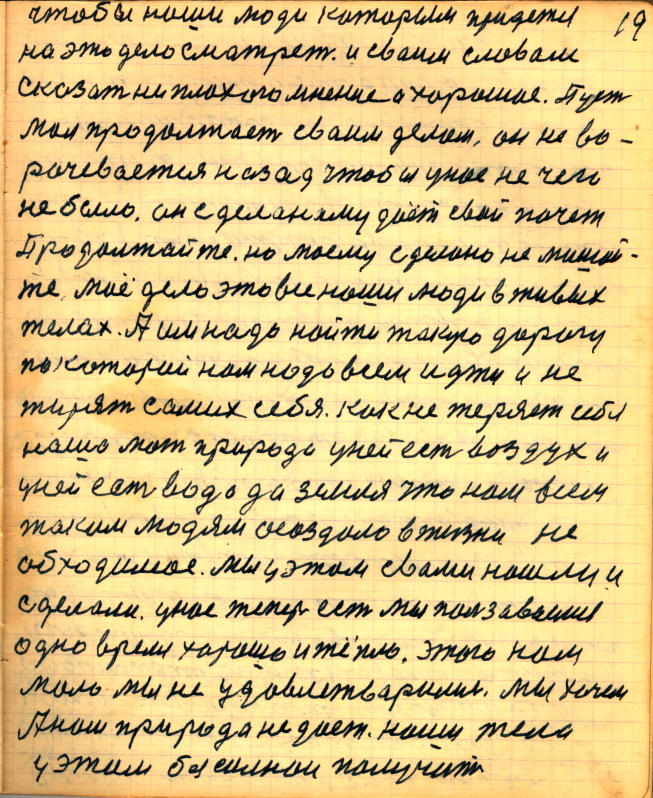 19
чтобы наши люди которым придетя
на это дело сматрет. и сваим словам
сказат ни плохого мнение а хорошое. Пуст
мол продолтает сваим делам, он не во-
рочевается назад чтобы унас не чего
не было, он сделаному даёт свой почет
Продолтайте. но моему сделоно не мишай-
те, моё дело это все наши люди в живых
телах. А им надо найти такую дорогу
по которой нам надо всем идти и не
тирят самих себя. как не теряет себя
наша мат природа уней ест воздух и
уней ест вода да земля что нам всем
таким людям осоздало в жизни не
обходимое. мы у этом свами нашли и
сделали. унас тепер ест мы ползавалис
одно время хорошо и тёпло, этого нам
мало мы не удовлетварилис. мы хочем
А нам природа не дает. наши тела
у этом бесилнои получит